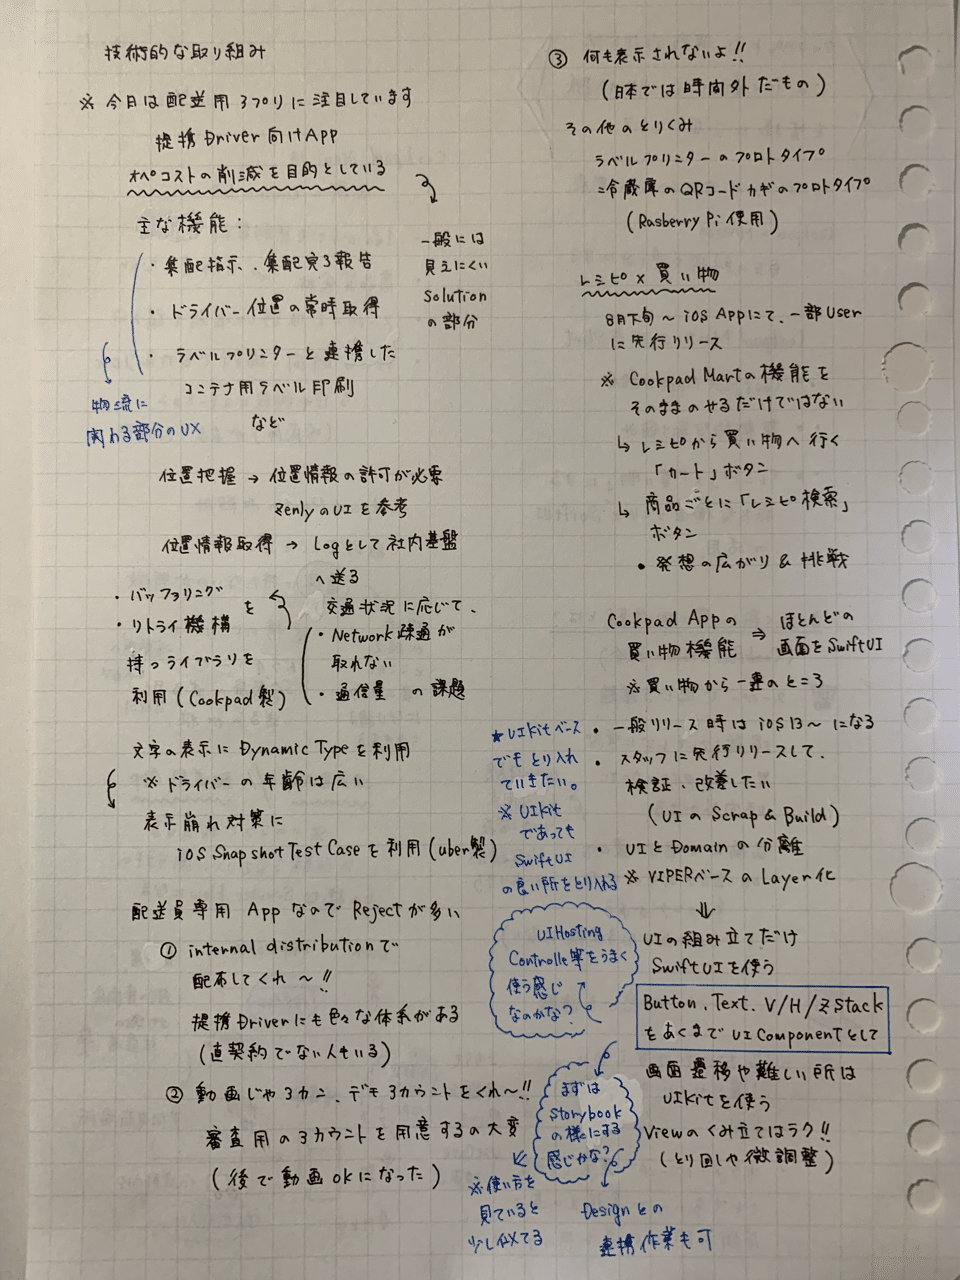 技術的な取り組み
※ 今日は配送用アプリに注目しています
提携Driver向けApp
オペコストの削減を目的としている
一般には
見えにくい
Solution
の部分
主な機能:
・集配指示、集配完了報告
・ドライバー位置の常時取得
・ラベルプリンターと連携した
コンテナ用ラベル印刷
など
物流に
関わる部分のUX
位置把握 → 位置情報の許可が必要
ZenlyのUIを参考
位置情報取得 → Logとして社内基盤
へ送る
交通状況に応じて、
・Network疎通が
取れない
・通信量 の課題
・バッファリング
・リトライ機構 を
持つライブラリを
利用(Cookpad製)
文字の表示にDynamic Typeを利用
※ ドライバーの年齢は広い
表示崩れ対策に
iOS Snapshot Test Caseを利用(uber製)
配送員専用AppなのでRejectが多い
① internal distributionで
配布してくれ〜!!
提携Driverにも色々な体系がある
(直契約でない人もいる)
② 動画じゃアカン、デモアカウントをくれ〜!!
審査用のアカウントを用意するの大変
(後で動画okになった)
③ 何も表示されないよ!!
(日本では時間外だもの)
その他のとりくみ
ラベルプリンターのプロトタイプ
冷蔵庫のQRコードカギのプロトタイプ
(Rasberry Pi 使用)
レシピ×買い物
8月下旬〜iOS Appにて、一部User
に先行リリース
※ Cookpad Martの機能を
そのままのせるだけではない
↳ レシピから買い物へ行く
「カート」ボタン
↳ 商品ごとに「レシピ検索」
ボタン
• 発想の広がり&挑戦
Cookpad Appの
買い物機能
⇒ ほとんどの
画面をSwiftUI
※買い物から一連のところ
・一般リリース時はiOS13〜になる
・スタッフに先行リリースして、
検証、改善したい
(UIのScrap & Build)
・UIとDomainの分離
※ VIPERベースのLayer化
⇓
UIの組み立てだけ
SwiftUIを使う
Button、Text、V/H/Z Stack
をあくまでUI Componentとして
画面遷移や難しい所は
UIKitを使う
Viewのくみ立てはラク!!
(とり回しや微調整)
★UIKitベース
でもとり入れ
ていきたい。
※UIKit
であっても
SwiftUI
の良い所をとり入れる
UIHosting
Controlle等をうまく
使う感じ
なのかな?
まずは
Storybook
の様にする
感じかな?
※使い方を
見ていると
少し似てる
Designとの
連携作業も可